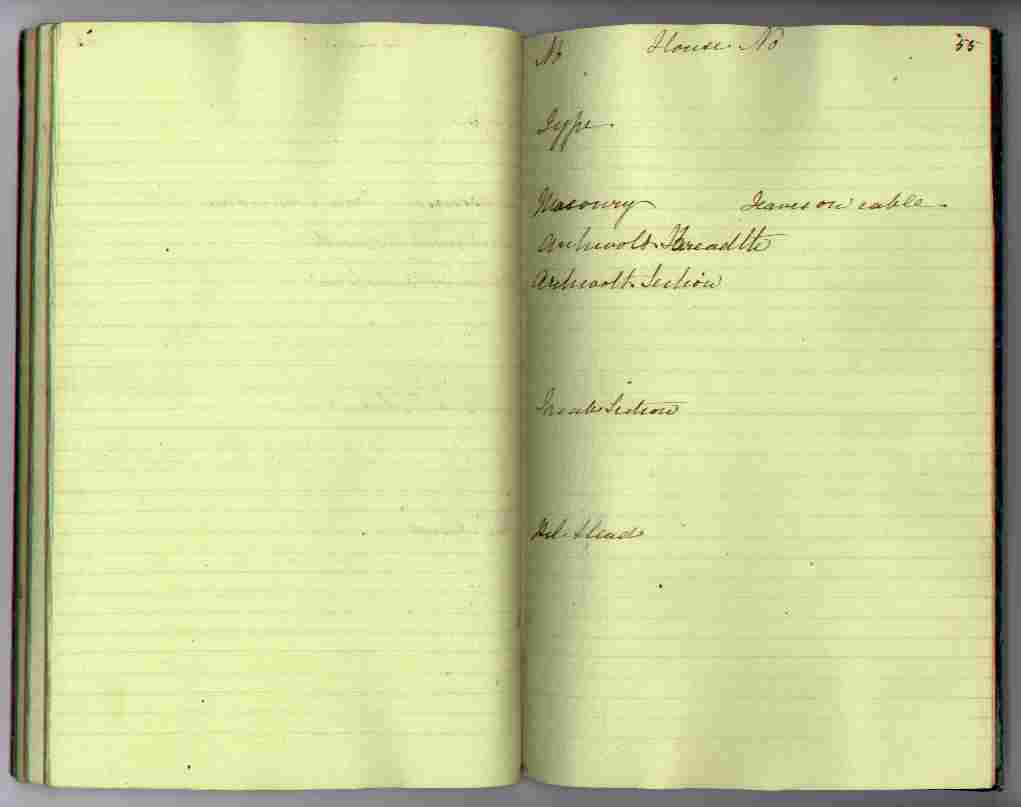 No House No 55
Type.
Masonry Leaves on cable.
Archivolt. Breadth
Archivolt. Section
Section
Head